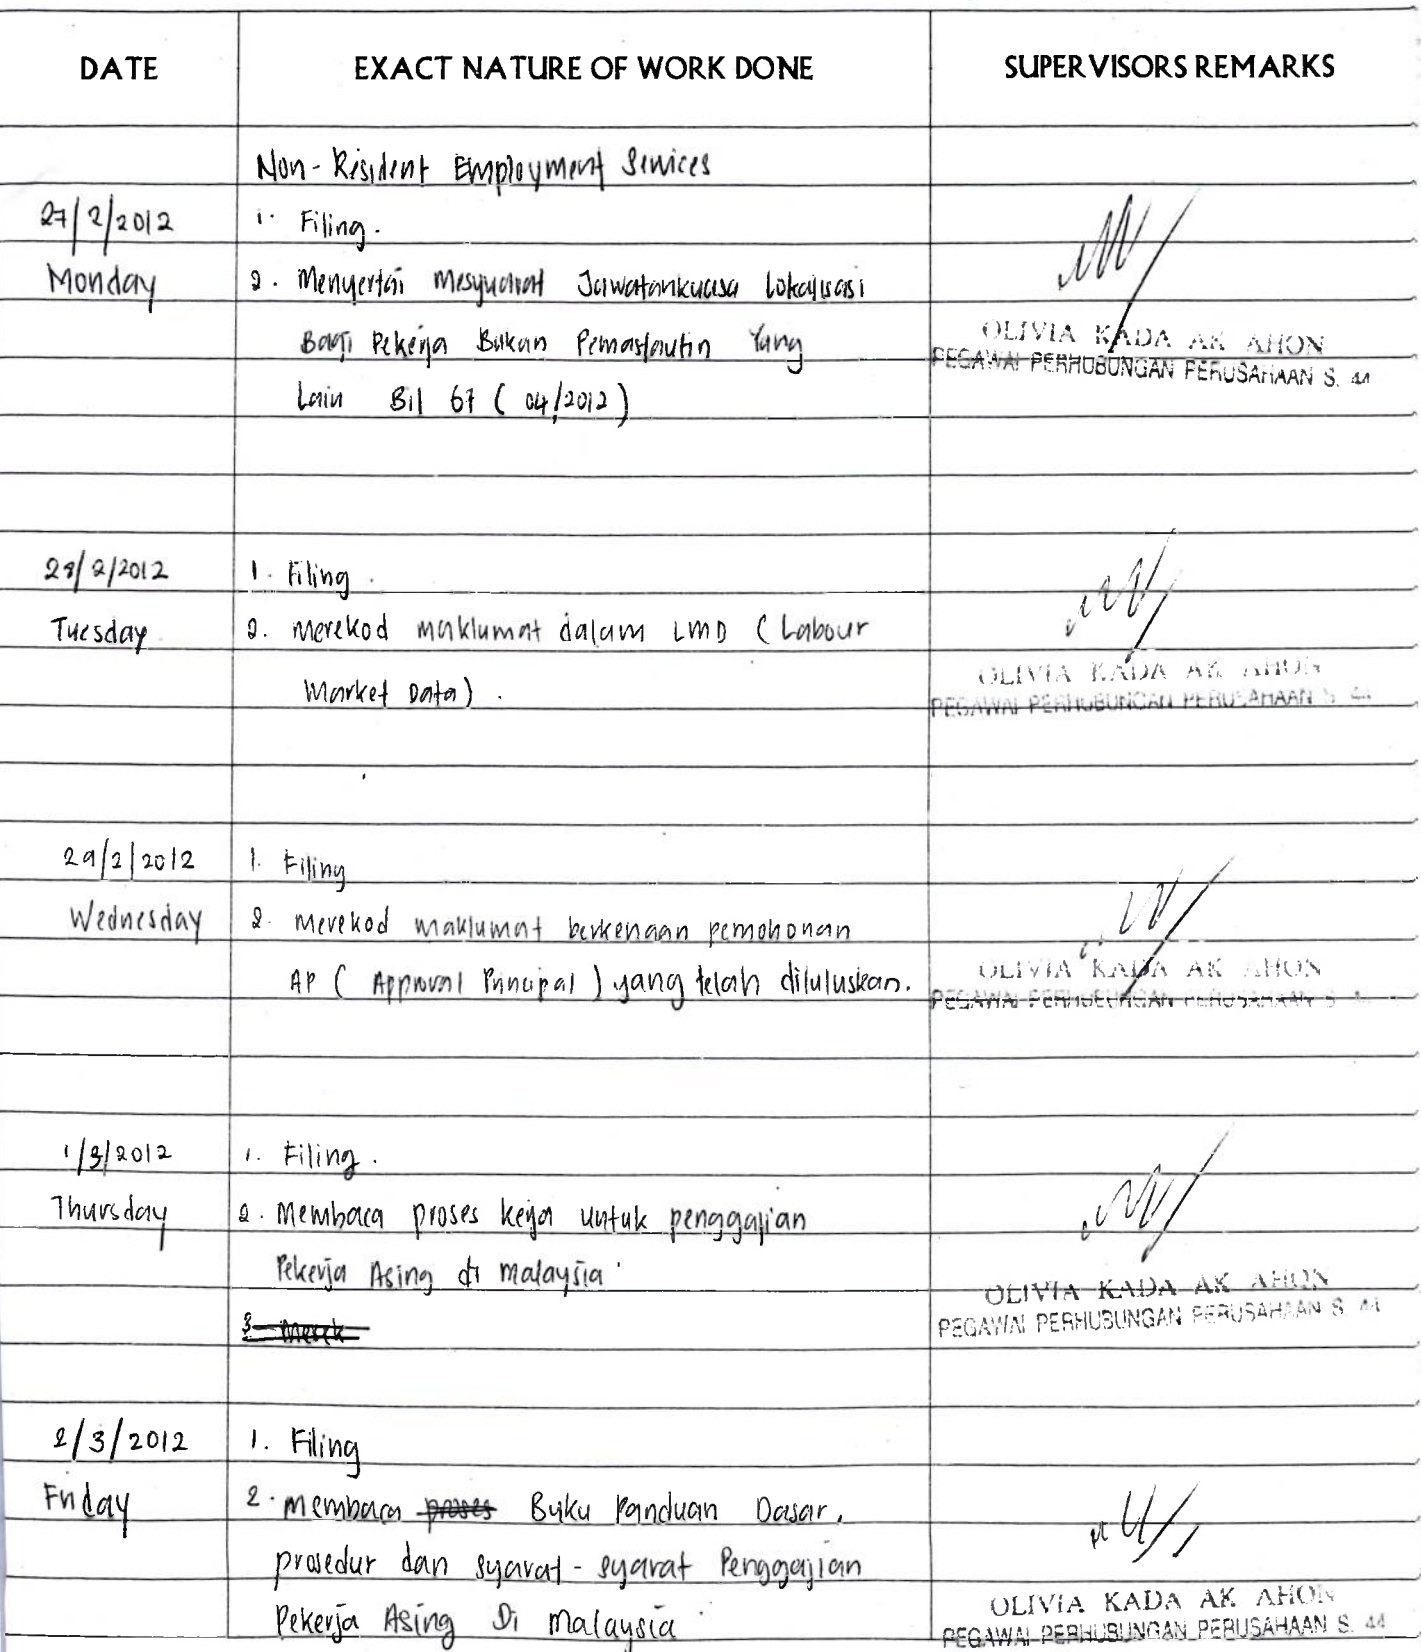 DATE EXACT NATURE OF WORK DONE SUPERVISORS REMARKS
Non-Resident Employment Services
27/2/2012 1. Filing.
Monday 2. Menyertai Mesyuarat Jawatankuasa Lokalisasi
Bagi Pekerja Bukan Pemastautin Yang
Lain Bil 67 (04/2012)
OLIVIA KADA AK AHON
PEGAWAI PERHUBUNGAN PERUSAHAAN S. 44
28/2/2012 1. Filing.
Tuesday 2. Merekod maklumat dalam LMD (Labour
Market Data).
OLIVIA KADA AK AHON
PEGAWAI PERHUBUNGAN PERUSAHAAN S. 44
29/2/2012 1. Filing
Wednesday 2. Merekod maklumat berkenaan pemohonan
AP (Approval Principal) yang telah diluluskan.
OLIVIA KADA AK AHON
PEGAWAI PERHUBUNGAN PERUSAHAAN S.
1/3/2012 1. Filing.
Thursday 2. Membaca proses kerja untuk penggajian
Pekerja Asing di Malaysia.
3. Merek
OLIVIA KADA AK AHON
PEGAWAI PERHUBUNGAN PERUSAHAAN S. 44
2/3/2012 1. Filing
Friday 2. Membaca proses Buku Panduan Dasar,
prosedur dan syarat-syarat Penggajian
Pekerja Asing Di Malaysia.
OLIVIA KADA AK AHON
PEGAWAI PERHUBUNGAN PERUSAHAAN S. 44